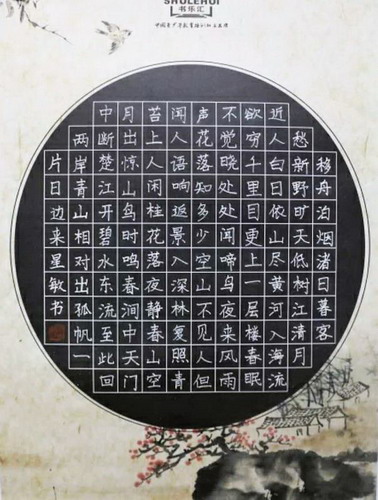 SHULEHUI
书乐汇
移舟泊烟渚日暮客
愁新野旷天低树江清月
近人白日依山尽黄河入海流
欲穷千里目更上一层楼春眠
不觉晓处处闻啼鸟夜来风雨
声花落知多少空山不见人但
闻人语响返景入深林复照青
苦上人闲桂花落夜静春山空
月出惊山鸟时鸣春涧中天门
中断楚江开碧水东流至此回
两岸青山相对出孤帆一
片日边来星敏书